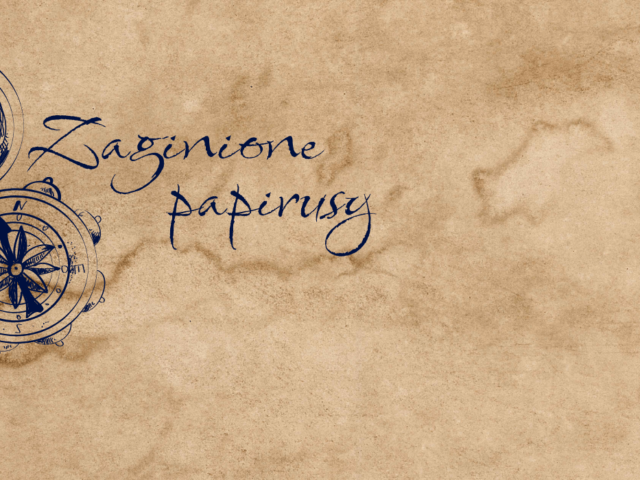 Zaginione
papirusy